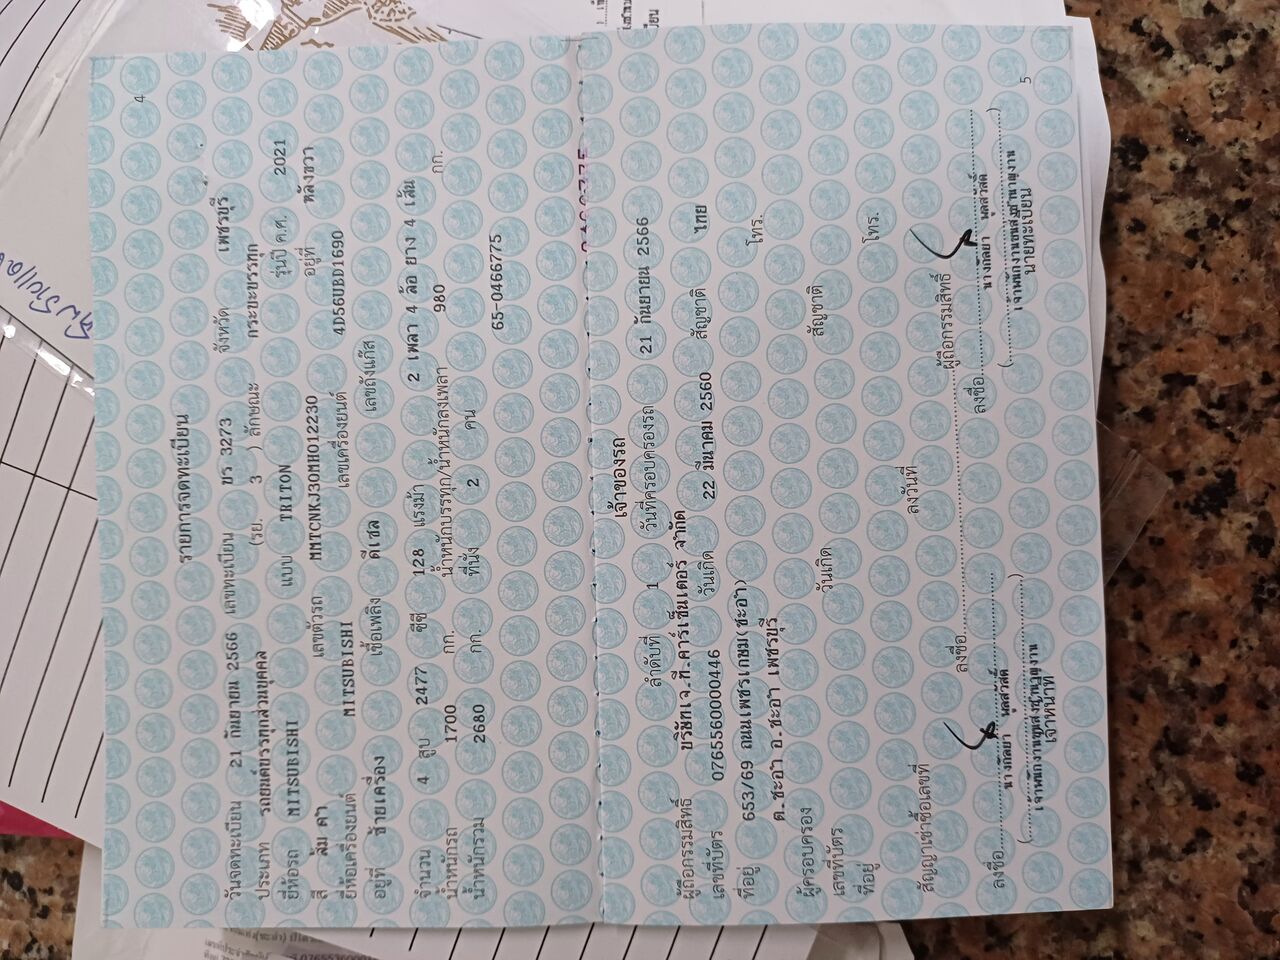 4
รายการจดทะเบียน
วันจดทะเบียน 21 กันยายน 2566 เลขทะเบียน ขร 3273 จังหวัด เพชรบุรี
ประเภท รถยนต์บรรทุกส่วนบุคคล (รย. 3 ) ลักษณะ กระบะบรรทุก
ยี่ห้อรถ MITSUBISHI แบบ TRITON รุ่นปี ค.ศ. 2021
สี ส้ม ดำ เลขตัวรถ MMTCNKJ30MH012230 อยู่ที่ หลังขวา
ยี่ห้อเครื่องยนต์ MITSUBISHI เลขเครื่องยนต์ 4D56UBD1690
อยู่ที่ ซ้ายเครื่อง เชื้อเพลิง ดีเซล เลขถังแก๊ส
จำนวน 4 สูบ 2477 ซีซี 128 แรงม้า 2 เพลา 4 ล้อ ยาง 4 เส้น
น้ำหนักรถ 1700 กก. น้ำหนักบรรทุก/น้ำหนักลงเพลา 980 กก.
น้ำหนักรวม 2680 กก. ที่นั่ง 2 คน
65-0466775
เจ้าของรถ
ลำดับที่ 1 วันที่ครอบครองรถ 21 กันยายน 2566
ผู้ถือกรรมสิทธิ์ บริษัทเจ.ที.คาร์เซ็นเตอร์ จำกัด
เลขที่บัตร 0765560000446 วันเกิด 22 มีนาคม 2560 สัญชาติ ไทย
ที่อยู่ 653/69 ถนนเพชรเกษม(ชะอำ) โทร.
ต.ชะอำ อ.ชะอำ เพชรบุรี
ผู้ครอบครอง
เลขที่บัตร วันเกิด สัญชาติ
ที่อยู่ โทร.
สัญญาเช่าซื้อเลขที่ ลงวันที่
ลงชื่อ ผู้ถือกรรมสิทธิ์
ลงชื่อ ลงชื่อ
เจ้าหน้าที่ นายทะเบียน
5